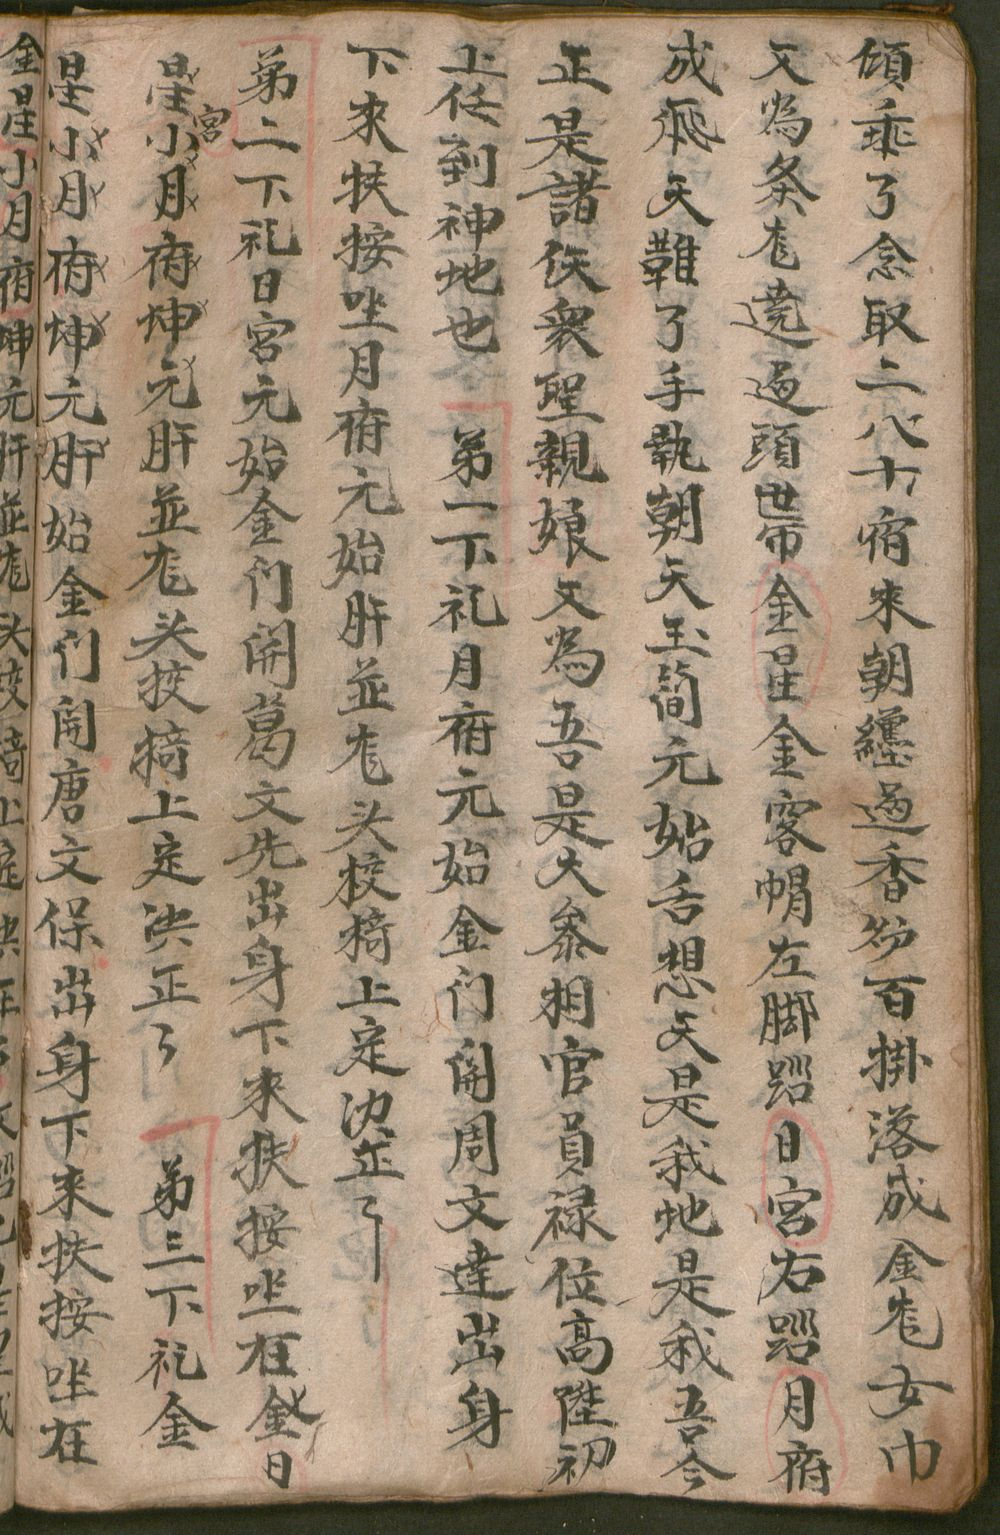 傾乖了念取二八十宿來朝纏過香炉百掛落成金尨女巾
又為条尨遶過頭帶金星金客帽左脚踏日宮右踏月府
成飛天難了手執朝天玉簡元始舌想天是我地是我吾今
正是諸佚衆聖親娘又為吾是大叅相官員禄位高陞初
上任到神地也 第一下礼月府元始金门開周文達出身
下來扶按坐月府元始肝並尨头校椅上定决正了
第二下礼日宮元始金门開葛文先出身下來扶按坐在金日
星宮小月府坤元肝並尨头校椅上定决正了 第三下礼金
星小月府坤元肝始金门開唐文保出身下來扶按坐在
金星小月府坤元肝並尨头校椅上定决正